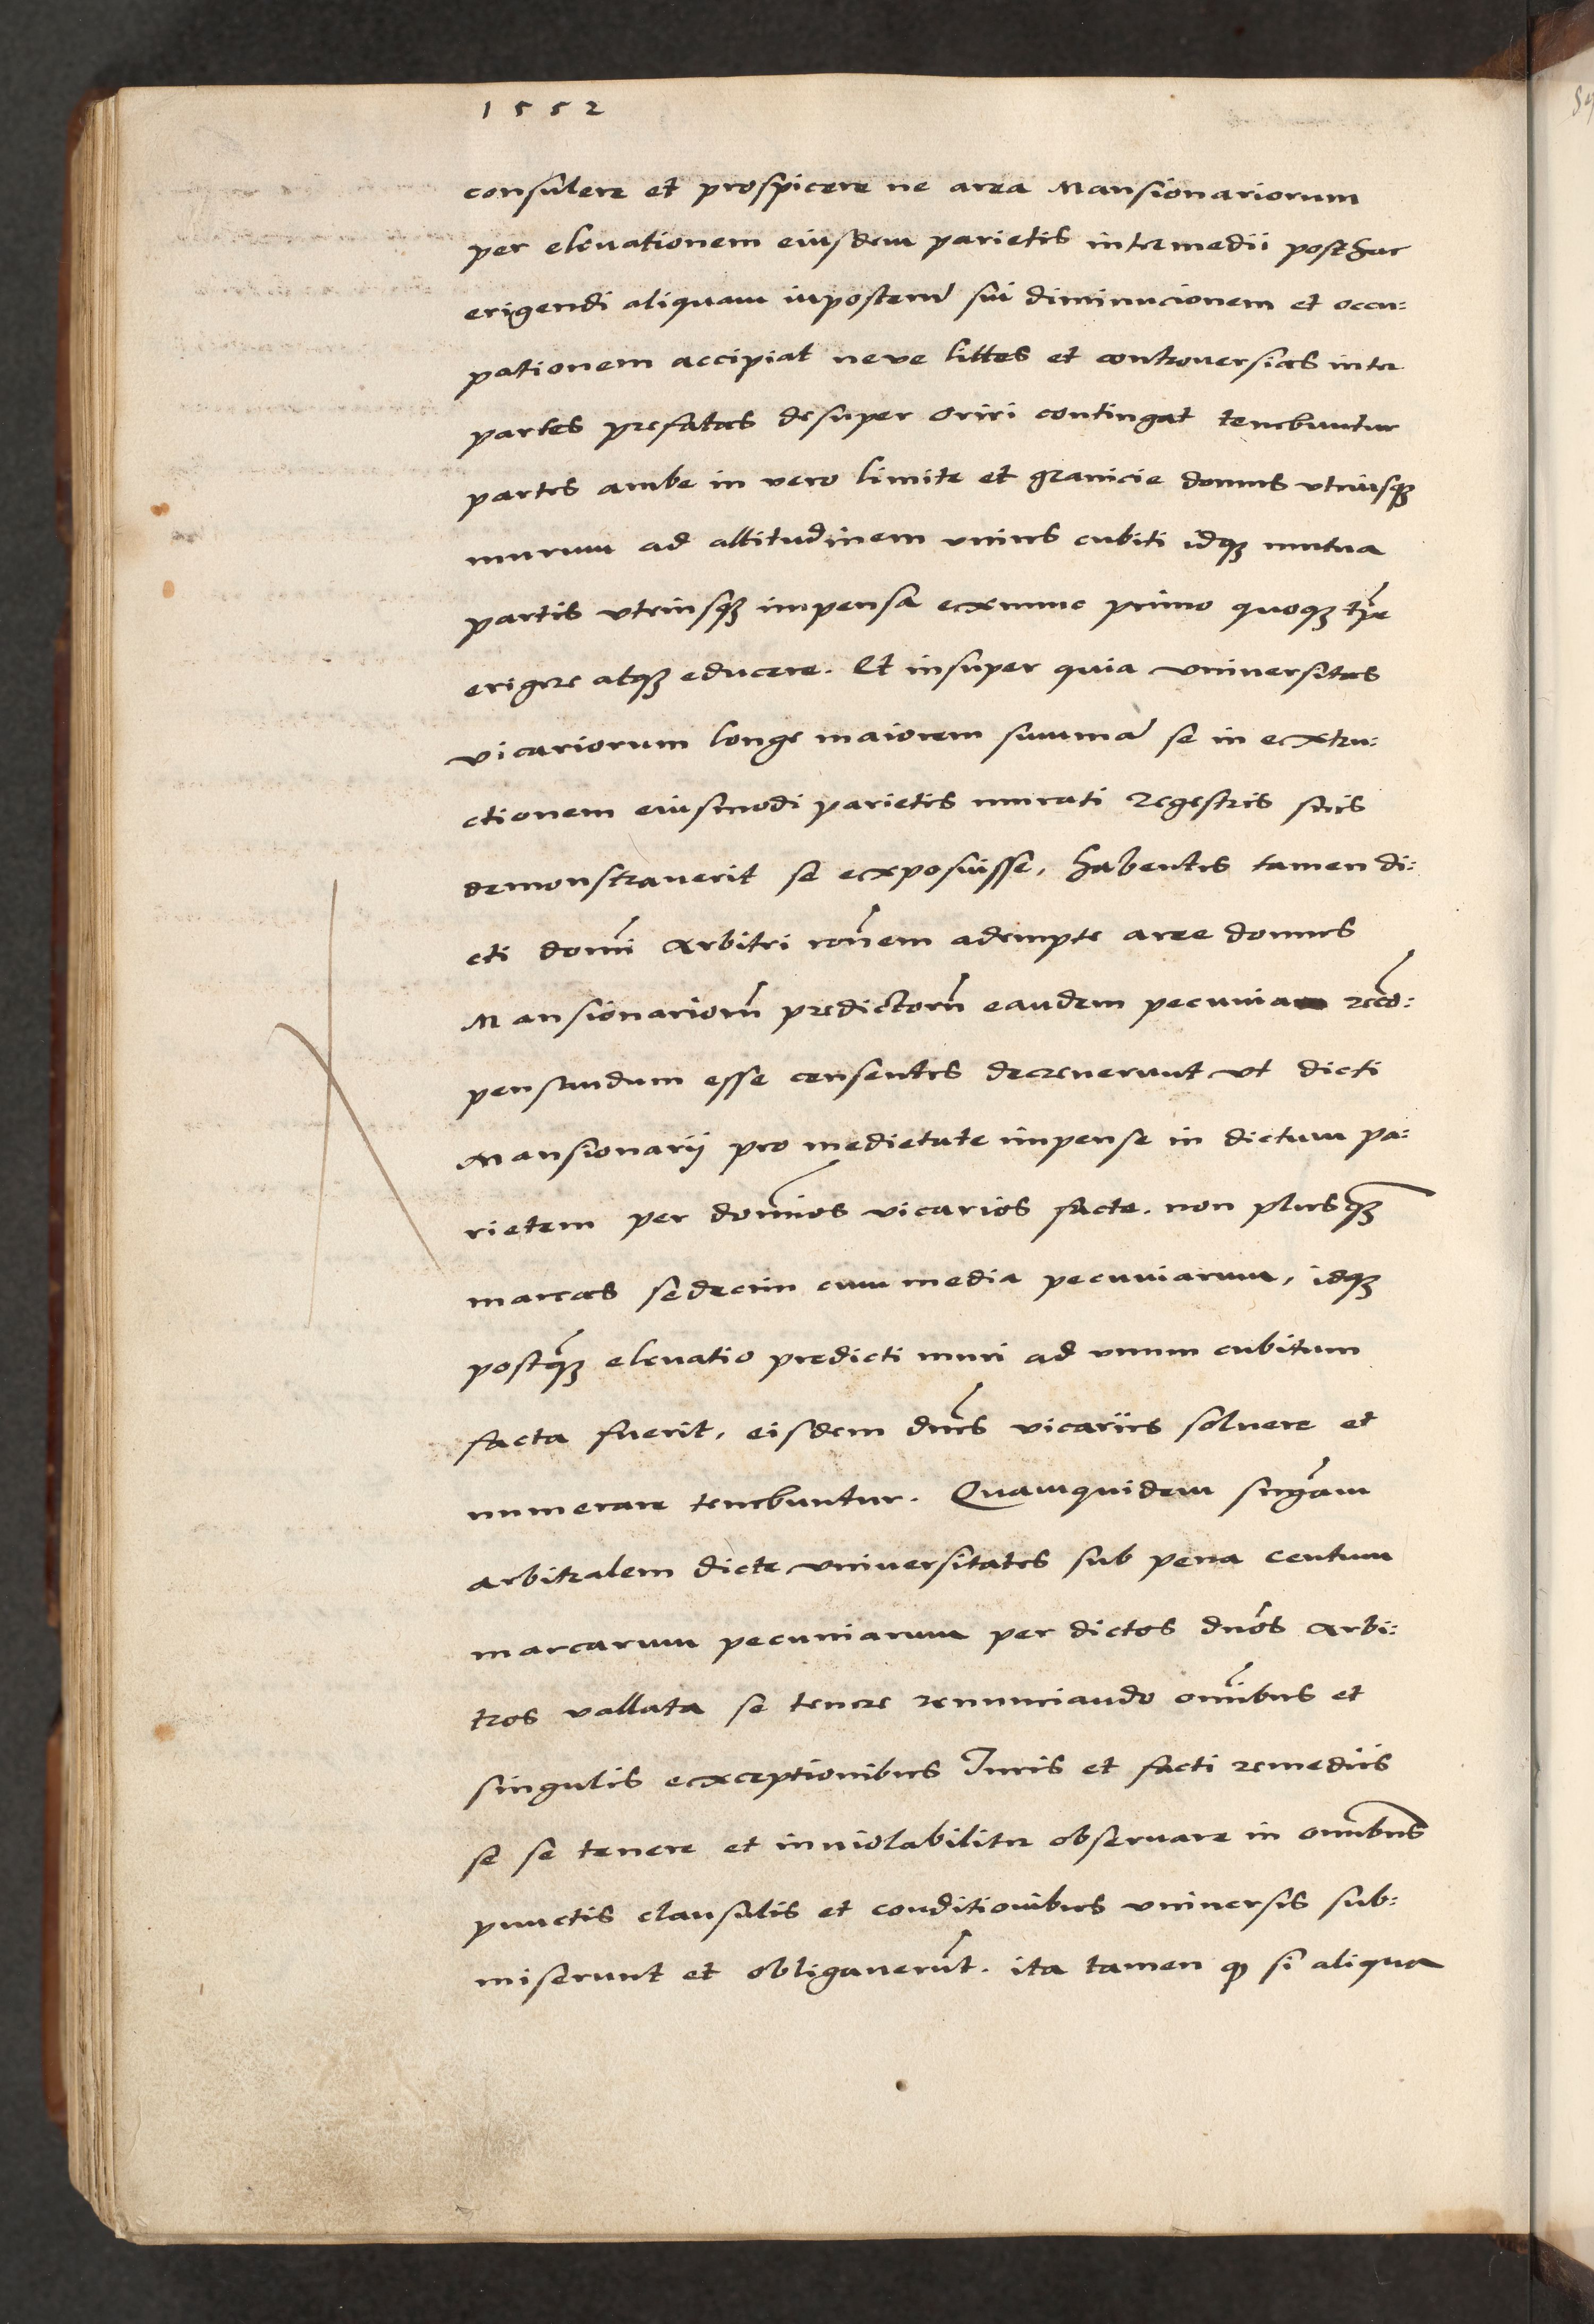 1552
consulere et prospicere ne area Mansionariorum
per eleuationem eiusdem parietis intermedii posthac
erigendi aliquam inposterū sui diminucionem et occu:
pationem accipiat neve littes et controuersias inter
partes prefatas desuper oriri contingat tenebuntur
partes ambe in vero limite et granicie domus vtriusqꝫ
murum ad altitudinem vnius cubiti idqꝫ mutua
partis vtriusqꝫ impensa exnunc primo quoqꝫ tp̄e
erigere atqꝫ educere. Et insuper quia vniuersitas
vicariorum longe maiorem summā se in extru:
ctionem eiusmodi parietis murati regestris suis
demonstrauerit se exposuisse, habentes tamen di:
cti domī Arbitri rōnem adempte aree domus
Mansionariorū predictorū eandem pecunia recō:
pensandum esse censentes decreuerunt vt dicti
Mansionarij pro medietate impense in dictum pa:
rietem per domīos vicarios facte. non plusqꝫ̄
marcas sedecim cum media pecuniarum, idqꝫ
postqꝫ̄ eleuatio predicti muri ad vnum cubitum
facta fuerit, eisdem dn̄is vicariis soluere et
numerare tenebuntur. Quamquidem sn̄iam
arbitralem dicte vniuersitates sub pena centum
marcarum pecuniarum per dictos dn̄os Arbi:
tros vallata se tenere renunciando om̄ibus et
singulis exceptionibus Iuris et facti remediis
se se tenere et inuiolabiliter obseruare in om̄ibus
punctis clausulis et conditionibus vniuersis sub:
miserunt et obligauerūt. ita tamen ꝙ si aliqua